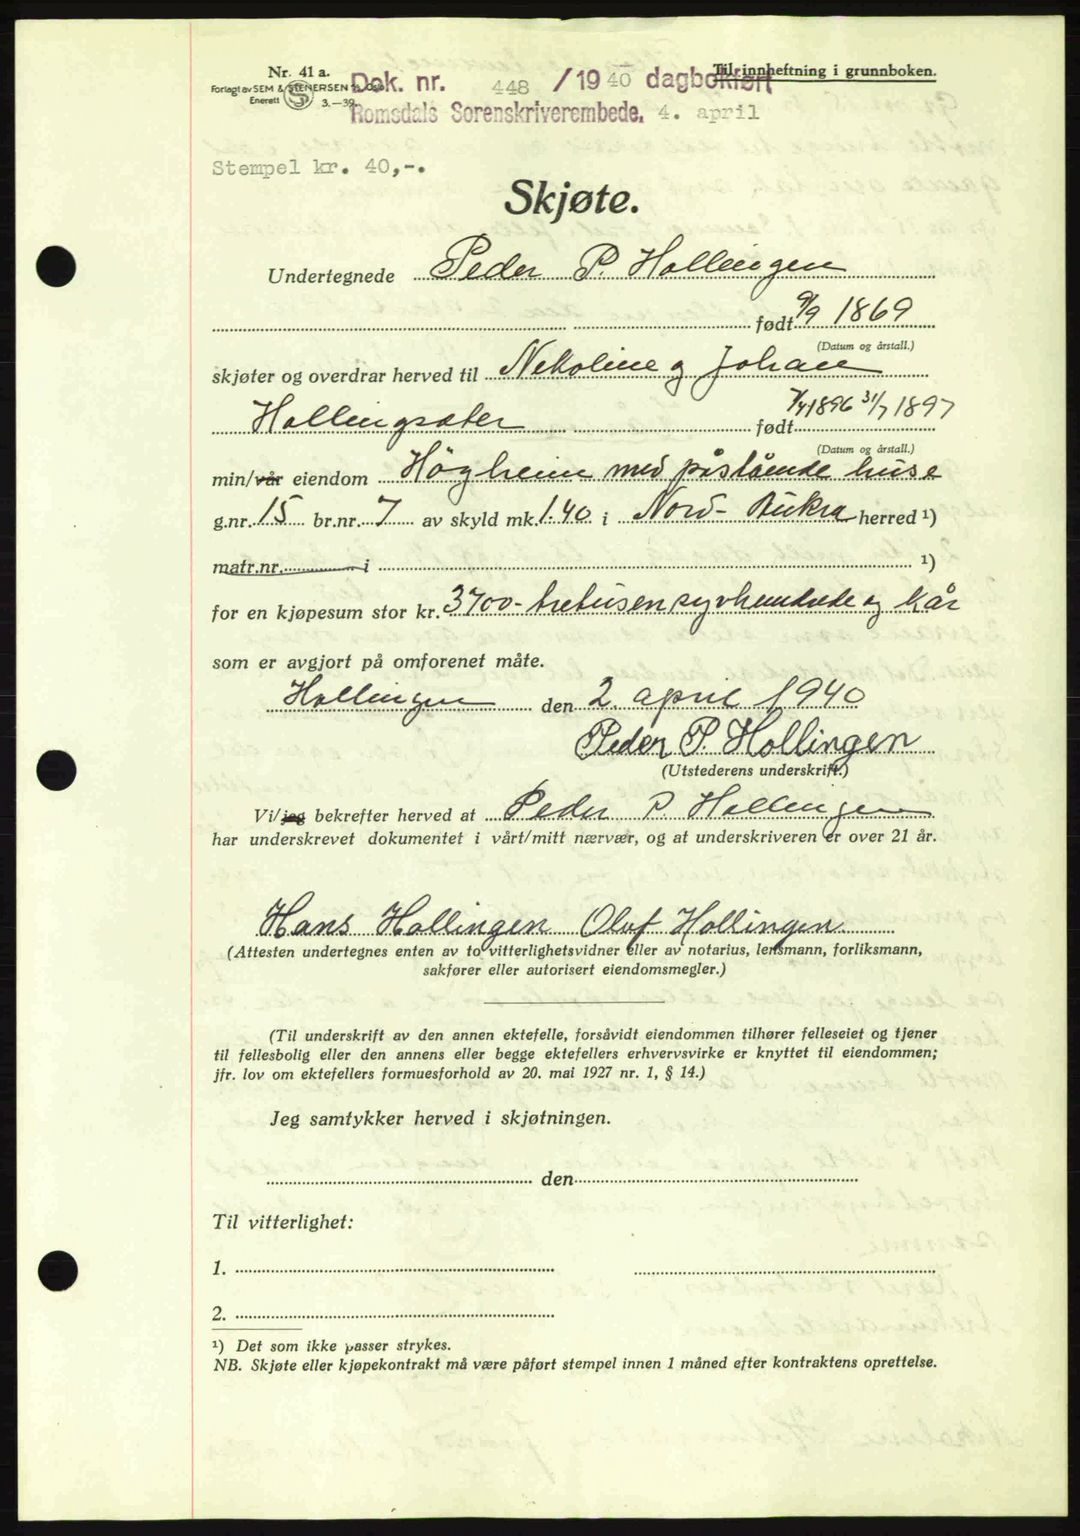 Nr. 41 a.
Forlagt av SEM & STENERSEN A/S, Oslo
Enerett 3.—39.
Dok. nr. 448 / 19 40 dagbokført
Til innheftning i grunnboken.
Romsdals Sorenskriverembede, 4. april
Stempel kr. 40,-.
Skjøte.
Undertegnede Peder P. Hollingen
født 9/9 1869
(Datum og årstall.)
skjøter og overdrar herved til Nekoline og Johan
Hollingsæter født 7/4 1896 31/7 1897
(Datum og årstall.)
min/vår eiendom Högheim med påstående huse
g.nr. 15 br.nr. 7 av skyld mk. 1.40 i Nord-Aukra herred ¹)
matr.nr. i ¹)
for en kjøpesum stor kr. 3700- tretusensyvhundrede og kår
som er avgjort på omforenet måte.
Hollingen den 2 april 1940
Peder P. Hollingen
(Utstederens underskrift.)
Vi/jeg bekrefter herved at Peder P. Hollingen
har underskrevet dokumentet i vårt/mitt nærvær, og at underskriveren er over 21 år.
Hans Hollingen Olaf Hollingen
(Attesten undertegnes enten av to vitterlighetsvidner eller av notarius, lensmann, forliksmann,
sakfører eller autorisert eiendomsmegler.)
(Til underskrift av den annen ektefelle, forsåvidt eiendommen tilhører felleseiet og tjener
til fellesbolig eller den annens eller begge ektefellers erhvervsvirke er knyttet til eiendommen;
jfr. lov om ektefellers formuesforhold av 20. mai 1927 nr. 1, § 14.)
Jeg samtykker herved i skjøtningen.
den
Til vitterlighet:
1.
2.
¹) Det som ikke passer strykes.
NB. Skjøte eller kjøpekontrakt må være påført stempel innen 1 måned efter kontraktens oprettelse.